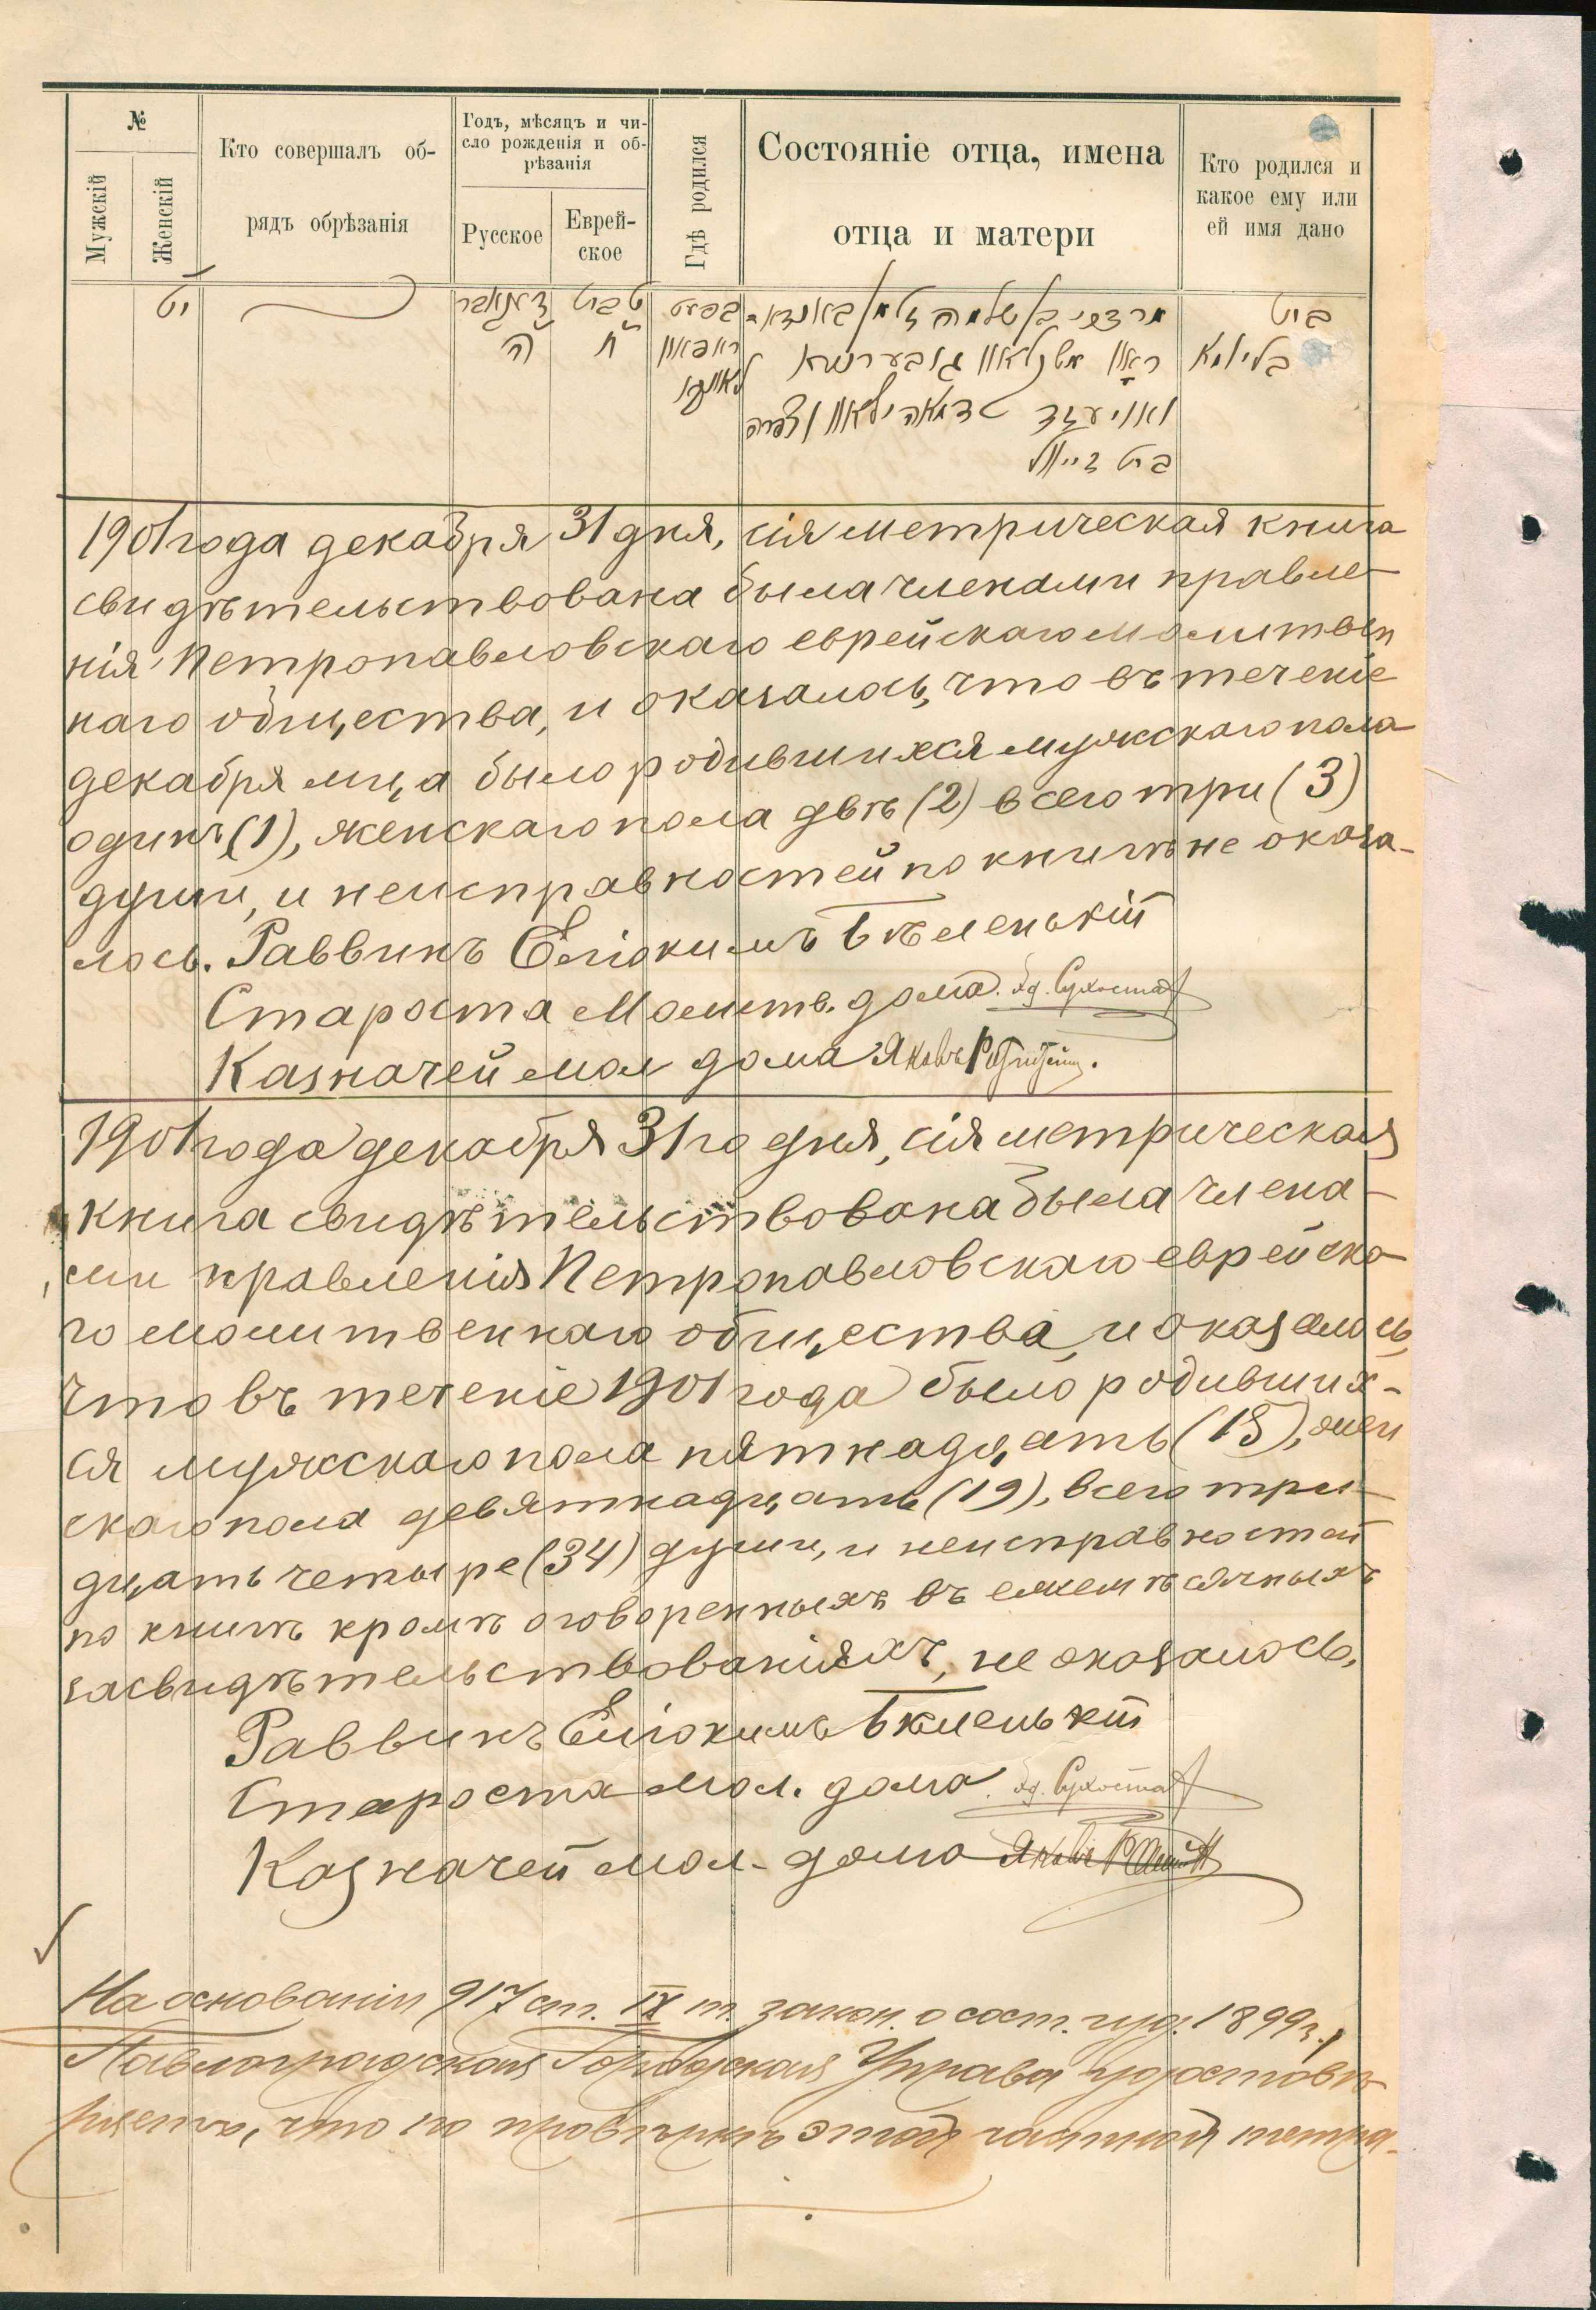 №
Мужскій
Женскій
Кто совершалъ об-
рядъ обрѣзанія
Годъ, мѣсяцъ и чи-
сло рожденія и об-
рѣзанія
Русское
Еврей-
ское
Гдѣ родился
Состояніе отца, имена
отца и матери
Кто родился и
какое ему или
ей имя дано
יט
דעקאבר
טבת
מרדכי בן שלמה
בת
ה
ח
גובערניא
בלומא
בת
1901 года декабря 31 дня, сія метрическая книга
свидѣтельствована была членами правле-
нія Петропавловскаго еврейскаго молитвен
наго общества, и оказалось, что въ теченіе
декабря м-ца было родившихся мужскаго пола
одинъ (1), женскаго пола двѣ (2) всего три (3)
души, и неисправностей по книгѣ не оказа-
лось. Раввинъ Еліокимъ Бѣленькій
Староста Молитв. дома.
Казначей мол дома Яковъ
1901 года декабря 31го дня, сія метрическая
книга свидѣтельствована была члена-
ми правленія Петропавловскаго еврейска-
го молитвеннаго общества, и оказалось,
что въ теченіе 1901 года было родивших-
ся мужскаго пола пятнадцать (15), жен
скаго пола девятнадцать (19), всего три-
дцать четыре (34) души, и неисправностей
по книгѣ кромѣ оговоренныхъ въ ежемѣсячныхъ
засвидѣтельствованіяхъ, не оказалось.
Раввинъ Еліокимъ Бѣленькій
Староста мол. дома.
Казначей мол. дома Яковъ
На основаніи 917 ст. IX т. закон. о сост. изд. 1899 г.,
Павлоградская Городская Управа удостовѣ-
ряетъ, что по провѣркѣ этой частной тетра-